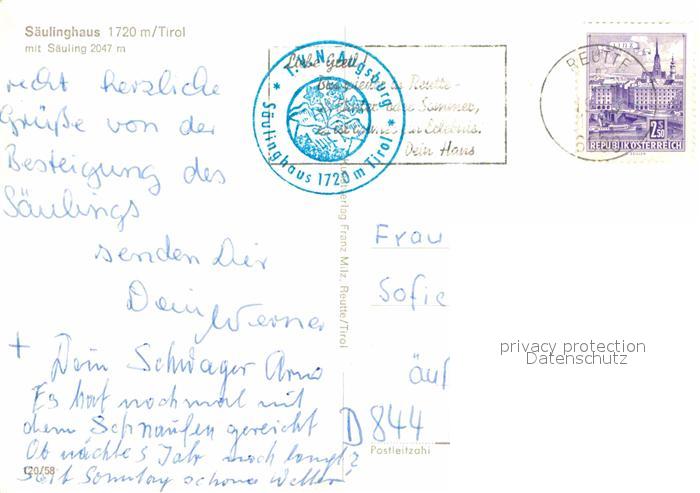 Säulinghaus 1720 m/Tirol
mit Säuling 2047 m
recht herzliche
Grüße von der
Besteigung des
Säulings
senden Dir
Dein Werner
+ Dein Schwager Arno
Es hat nochmal mit
dem Schnaufen gereicht
Ob nächtes Jahr noch langt?
Seit Sonntag schönes Wetter
120/58
* T.V.N. Augsburg *
Säulinghaus 1720 m Tirol
Liebe Gretl
Reutte -
Sommer,
Erlebnis.
Dein Hans
REUTTE
LINZ
2.50 S
REPUBLIK ÖSTERREICH
verlag Franz Milz, Reutte/Tirol
Frau
Sofie
D 844
Postleitzahl
privacy protection
Datenschutz